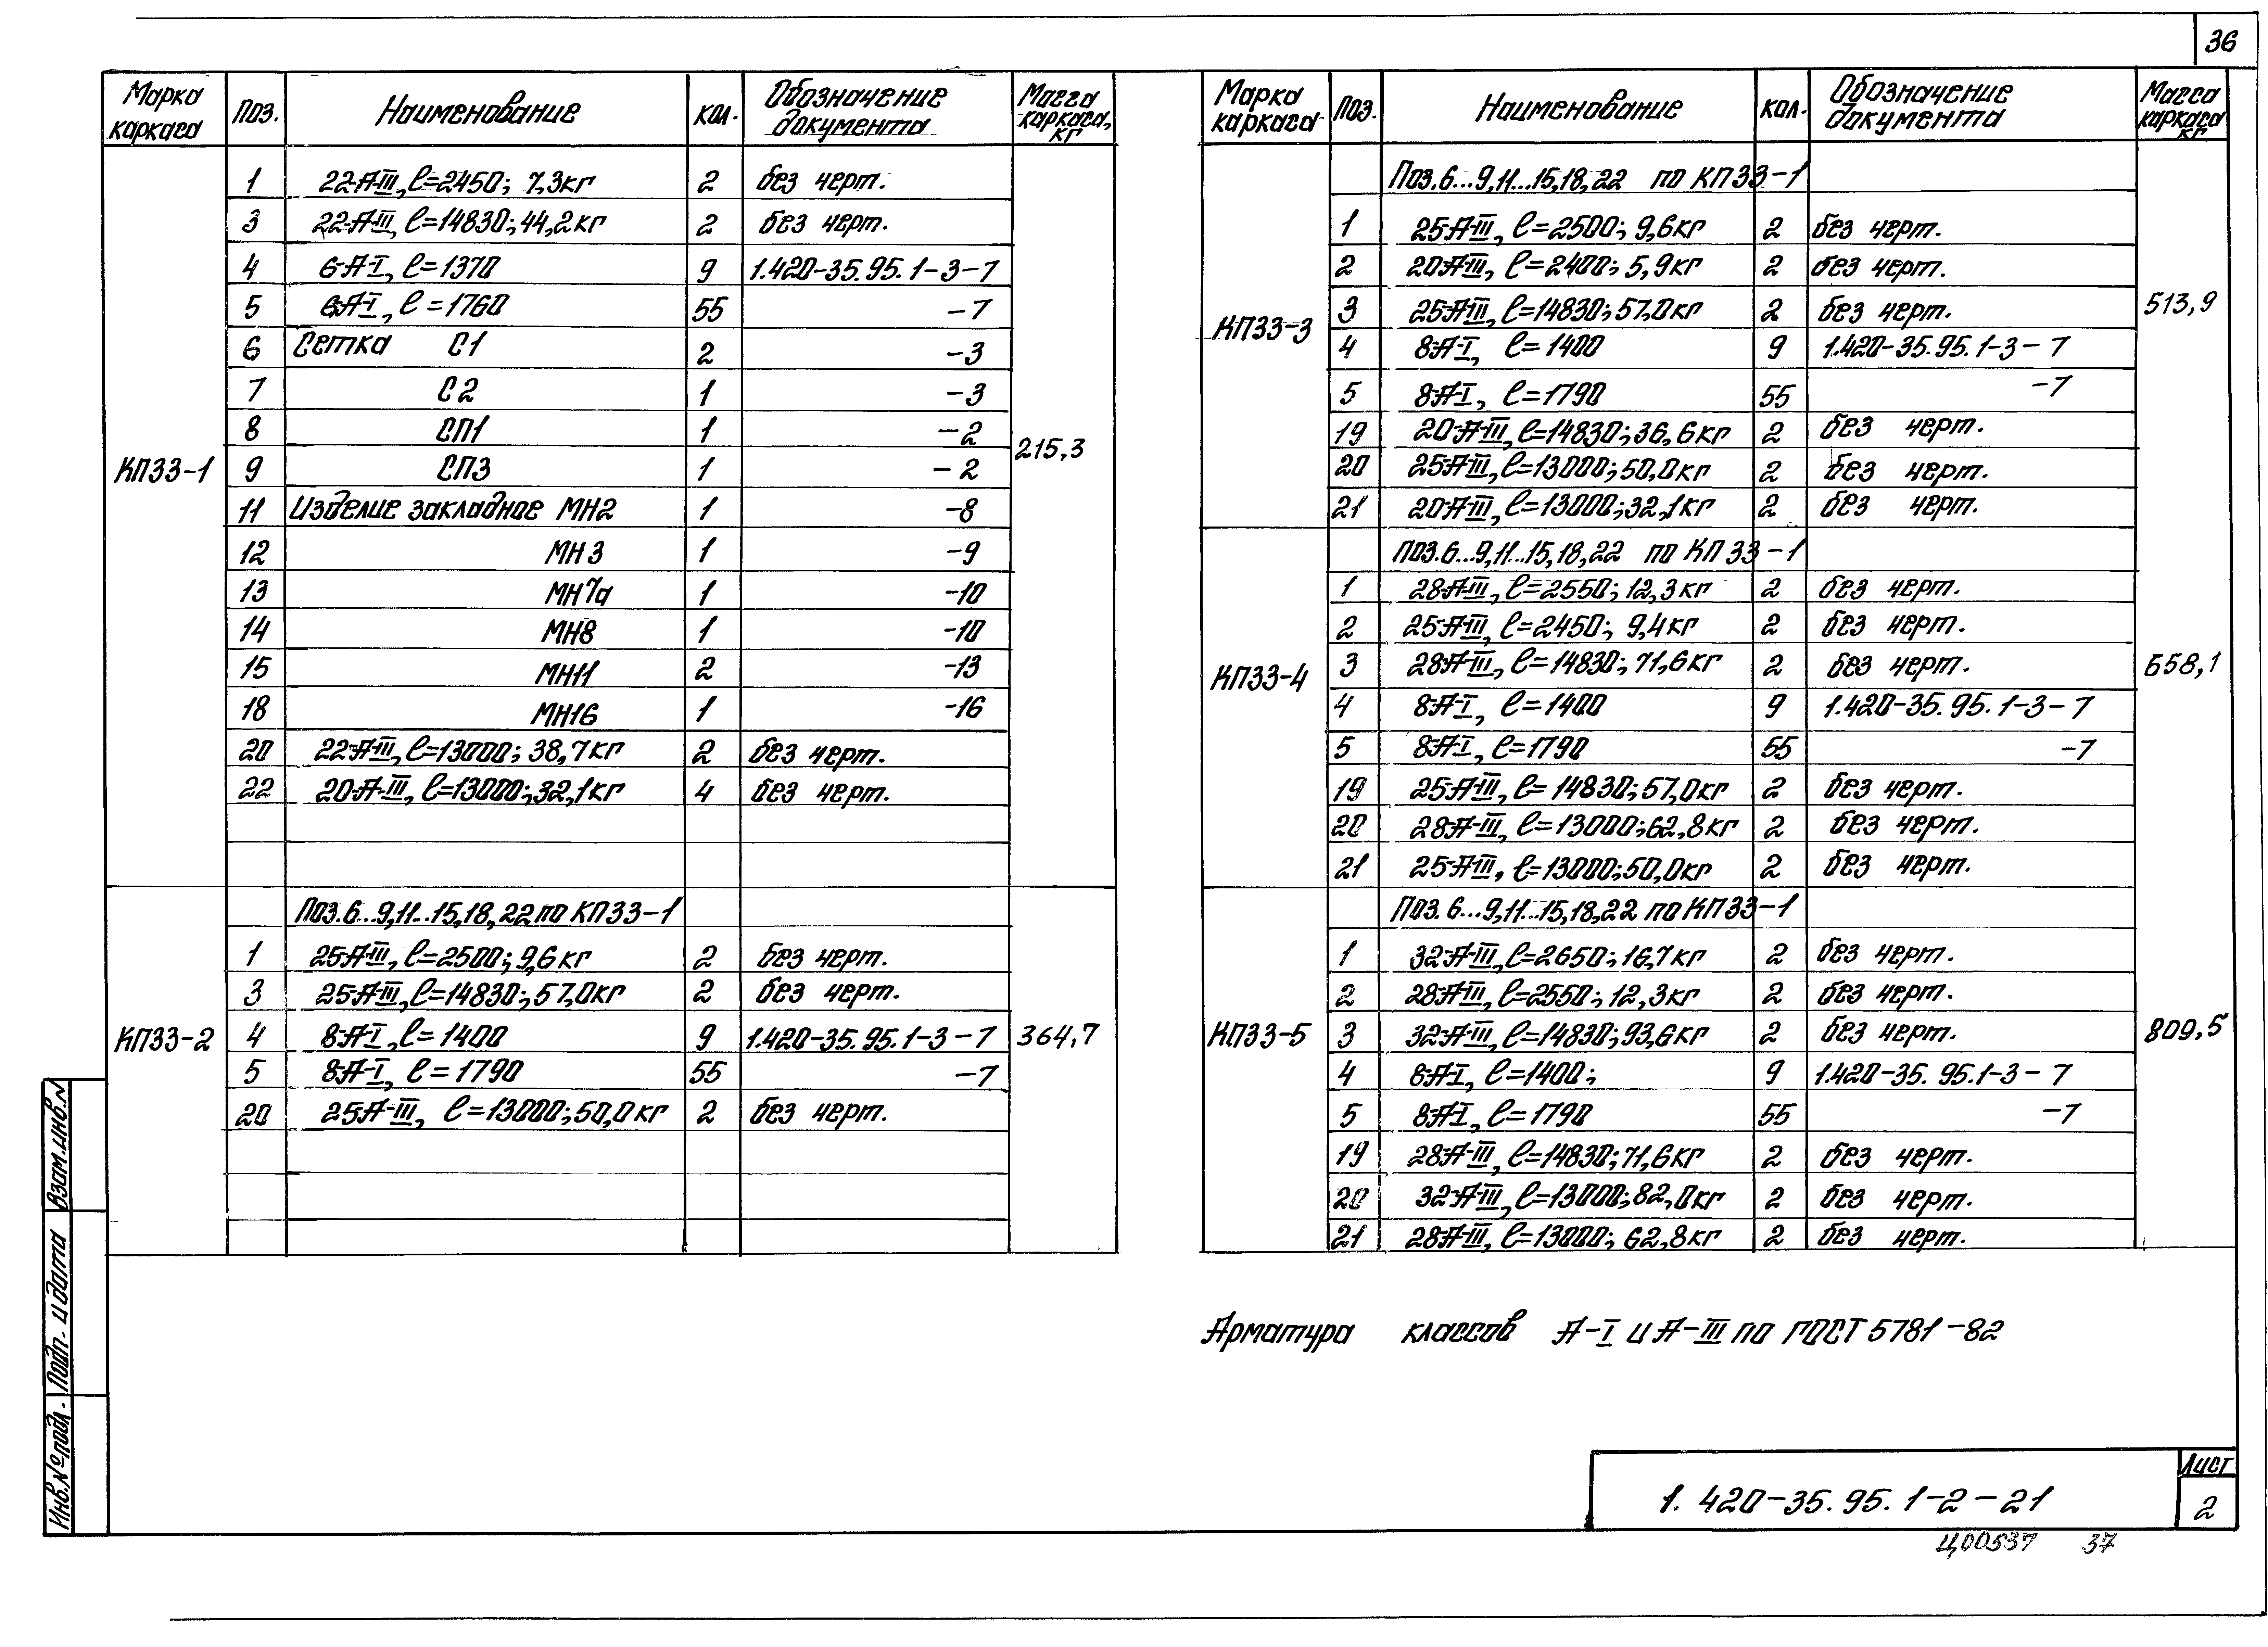 36
Марка каркаса Поз. Наименование кол. Обозначение документа Масса каркаса, кг
КП33-1 215,3
1 22А-III, ℓ=2450; 7,3кг 2 без черт.
3 22А-III, ℓ=14830; 44,2кг 2 без черт.
4 6А-I, ℓ=1370 9 1.420-35.95.1-3-7
5 6А-I, ℓ=1760 55 -7
6 Сетка С1 2 -3
7 С2 1 -3
8 СП1 1 -2
9 СП3 1 -2
11 Изделие закладное МН2 1 -8
12 МН3 1 -9
13 МН7а 1 -10
14 МН8 1 -10
15 МН11 2 -13
18 МН16 1 -16
20 22А-III, ℓ=13000; 38,7кг 2 без черт.
22 20А-III, ℓ=13000; 32,1кг 4 без черт.
КП33-2 364,7
Поз.6...9,11...15,18,22 по КП33-1
1 25А-III, ℓ=2500; 9,6кг 2 без черт.
3 25А-III, ℓ=14830; 57,0кг 2 без черт.
4 8А-I, ℓ=1400 9 1.420-35.95.1-3-7
5 8А-I, ℓ=1790 55 -7
20 25А-III, ℓ=13000; 50,0кг 2 без черт.
Марка каркаса Поз. Наименование кол. Обозначение документа Масса каркаса кг
КП33-3 513,9
Поз.6...9,11...15,18,22 по КП33-1
1 25А-III, ℓ=2500; 9,6кг 2 без черт.
2 20А-III, ℓ=2400; 5,9кг 2 без черт.
3 25А-III, ℓ=14830; 57,0кг 2 без черт.
4 8А-I, ℓ=1400 9 1.420-35.95.1-3-7
5 8А-I, ℓ=1790 55 -7
19 20А-III, ℓ=14830; 36,6кг 2 без черт.
20 25А-III, ℓ=13000; 50,0кг 2 без черт.
21 20А-III, ℓ=13000; 32,1кг 2 без черт.
КП33-4 658,1
Поз.6...9,11...15,18,22 по КП33-1
1 28А-III, ℓ=2550; 12,3кг 2 без черт.
2 25А-III, ℓ=2450; 9,4кг 2 без черт.
3 28А-III, ℓ=14830; 71,6кг 2 без черт.
4 8А-I, ℓ=1400 9 1.420-35.95.1-3-7
5 8А-I, ℓ=1790 55 -7
19 25А-III, ℓ=14830; 57,0кг 2 без черт.
20 28А-III, ℓ=13000; 62,8кг 2 без черт.
21 25А-III, ℓ=13000; 50,0кг 2 без черт.
КП33-5 809,5
Поз.6...9,11...15,18,22 по КП33-1
1 32А-III, ℓ=2650; 16,7кг 2 без черт.
2 28А-III, ℓ=2550; 12,3кг 2 без черт.
3 32А-III, ℓ=14830; 93,6кг 2 без черт.
4 8А-I, ℓ=1400; 9 1.420-35.95.1-3-7
5 8А-I, ℓ=1790 55 -7
19 28А-III, ℓ=14830; 71,6кг 2 без черт.
20 32А-III, ℓ=13000; 82,0кг 2 без черт.
21 28А-III, ℓ=13000; 62,8кг 2 без черт.
Арматура классов А-I и А-III по ГОСТ 5781-82
Взам.инв.№
Подп. и дата
Инв.№подл.
1.420-35.95.1-2-21
Лист
2
Ц00537 37